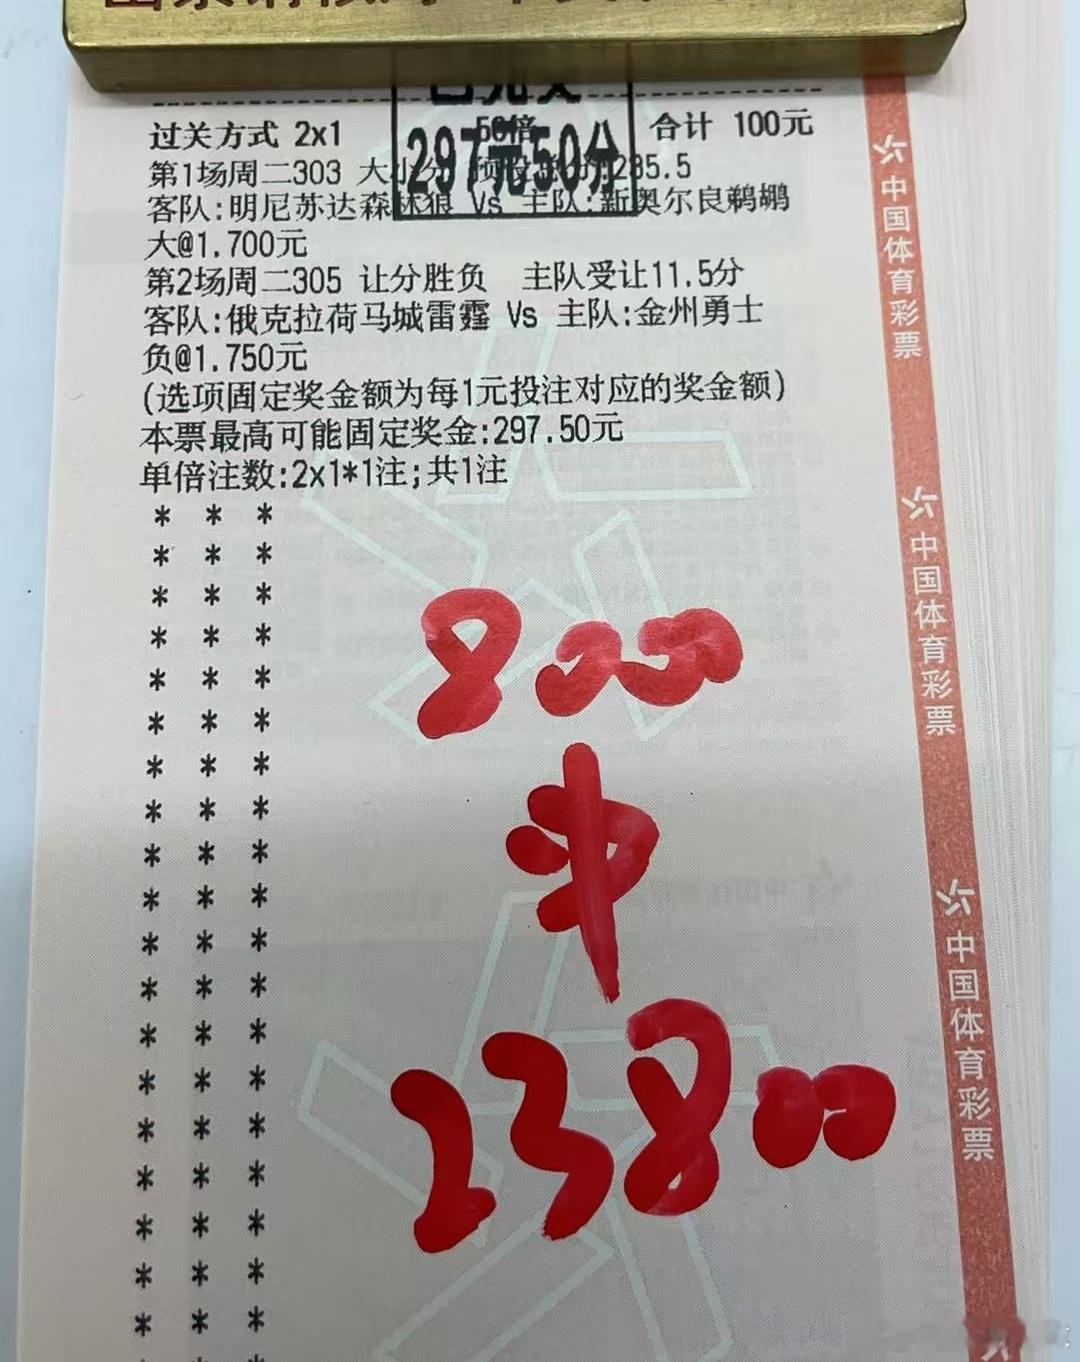 过关方式 2x1 50倍 合计 100元
297元50分
第1场周二303 大小分 预设总分:235.5
客队:明尼苏达森林狼 Vs 主队:新奥尔良鹈鹕
大@1.700元
第2场周二305 让分胜负 主队受让11.5分
客队:俄克拉荷马城雷霆 Vs 主队:金州勇士
负@1.750元
(选项固定奖金额为每1元投注对应的奖金额)
本票最高可能固定奖金:297.50元
单倍注数:2x1*1注;共1注
* * *
* * *
* * *
* * *
* * *
* * *
* * *
* * *
* * *
* * *
* * *
* * *
* * *
* * *
* * *
* * *
* * *
* * *
* * *
800
中
23800
中国体育彩票
中国体育彩票
中国体育彩票